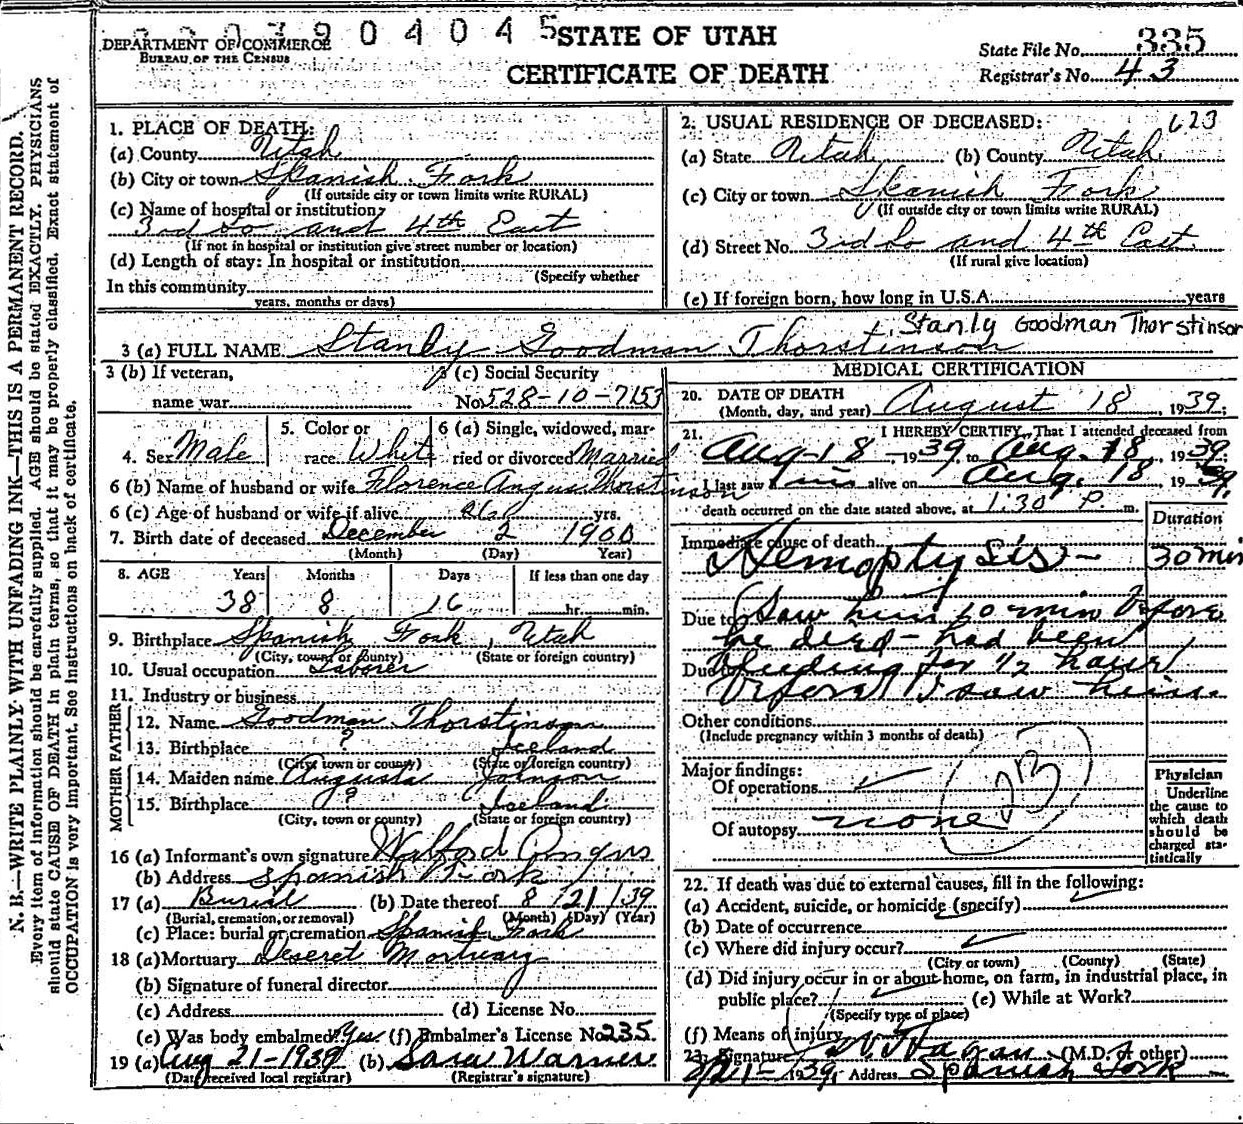 2 3 0 7 9 0 4 0 4 5
DEPARTMENT OF COMMERCE
BUREAU OF THE CENSUS
STATE OF UTAH
CERTIFICATE OF DEATH
State File No. 335
Registrar's No. 43
N. B.—WRITE PLAINLY WITH UNFADING INK—THIS IS A PERMANENT RECORD.
Every item of information should be carefully supplied. AGE should be stated EXACTLY. PHYSICIANS
should state CAUSE OF DEATH in plain terms, so that it may be properly classified. Exact statement of
OCCUPATION is very important. See instructions on back of certificate.
1. PLACE OF DEATH:
(a) County Utah
(b) City or town Spanish Fork
(If outside city or town limits write RURAL)
(c) Name of hospital or institution:
3rd So and 4th East
(If not in hospital or institution give street number or location)
(d) Length of stay: In hospital or institution
(Specify whether
In this community
years, months or days)
2. USUAL RESIDENCE OF DECEASED: 623
(a) State Utah (b) County Utah
(c) City or town Spanish Fork
(If outside city or town limits write RURAL)
(d) Street No. 3rd So and 4th East
(If rural give location)
(e) If foreign born, how long in U.S.A. years
Stanly Goodman Thorstinson
3 (a) FULL NAME Stanly Goodman Thorstinson
3 (b) If veteran,
name war
(c) Social Security
No. 528-10-7153
4. Sex Male
5. Color or
race White
6 (a) Single, widowed, mar-
ried or divorced Married
6 (b) Name of husband or wife Florence Angus Thorstinson
6 (c) Age of husband or wife if alive yrs.
7. Birth date of deceased December 2 1900
(Month) (Day) Year)
8. AGE Years Months Days If less than one day
38 8 16 hr. min.
9. Birthplace Spanish Fork, Utah
(City, town or county) (State or foreign country)
10. Usual occupation Laborer
11. Industry or business
FATHER
12. Name Goodman Thorstinson
13. Birthplace ? Iceland
(City, town or county) (State or foreign country)
MOTHER
14. Maiden name Augusta Johnson
15. Birthplace ? Iceland
(City, town or county) (State or foreign country)
16 (a) Informant's own signature Walford Angus
(b) Address Spanish Fork
17 (a) Burial (b) Date thereof 8/21/39
(Burial, cremation, or removal) (Month) (Day) (Year)
(c) Place: burial or cremation Spanish Fork
18 (a) Mortuary Deseret Mortuary
(b) Signature of funeral director
(c) Address (d) License No.
(e) Was body embalmed? Yes (f) Embalmer's License No. 235
19 (a) Aug 21-1939 (b) Sara Warner
(Date received local registrar) (Registrar's signature)
MEDICAL CERTIFICATION
20. DATE OF DEATH
(Month, day, and year) August 18, 1939;
21. I HEREBY CERTIFY, That I attended deceased from
Aug-18-1939, to Aug. 18, 1939;
I last saw him alive on Aug. 18 1939;
death occurred on the date stated above, at 1:30 P. m.
Duration
Immediate cause of death
Hemoptysis - 30 min
Due to (Saw him 10 min before
he died - had been
Due to bleeding for 1/2 hour
before I saw him.
Other conditions
(Include pregnancy within 3 months of death)
Major findings:
Of operations
Of autopsy none
23
Physician
Underline
the cause to
which death
should be
charged sta-
tistically
22. If death was due to external causes, fill in the following:
(a) Accident, suicide, or homicide (specify)
(b) Date of occurrence
(c) Where did injury occur?
(City or town) (County) (State)
(d) Did injury occur in or about home, on farm, in industrial place, in
public place? (e) While at Work?
(Specify type of place)
(f) Means of injury
23. Signature W Hagan (M.D. or other)
8/21-1939, Address Spanish Fork